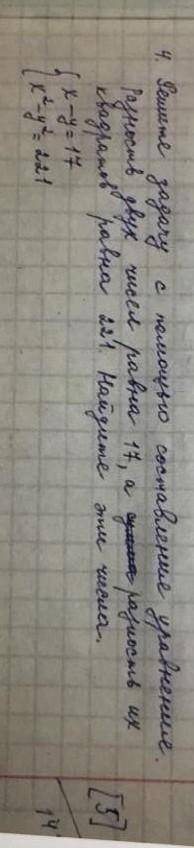 4. Решите задачу с помощью составление уравнение.
Разность двух чисел равна 17, а разность их
квадратов равна 221. Найдите эти числа.
{ x - y = 17
x² - y² = 221
[5]
14